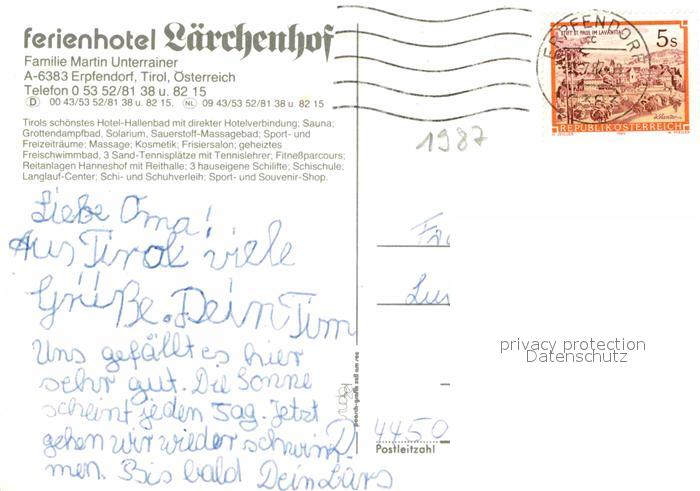 ferienhotel Lärchenhof
Familie Martin Unterrainer
A-6383 Erpfendorf, Tirol, Österreich
Telefon 0 53 52/81 38 u. 82 15
D 00 43/53 52/81 38 u. 82 15, NL 09 43/53 52/81 38 u. 82 15
Tirols schönstes Hotel-Hallenbad mit direkter Hotelverbindung; Sauna;
Grottendampfbad, Solarium, Sauerstoff-Massagebad; Sport- und
Freizeiträume; Massage; Kosmetik; Frisiersalon; geheiztes
Freischwimmbad, 3 Sand-Tennisplätze mit Tennislehrer; Fitneßparcours;
Reitanlagen Hanneshof mit Reithalle; 3 hauseigene Schilifte; Schischule;
Langlauf-Center; Schi- und Schuhverleih; Sport- und Souvenir-Shop.
STIFT ST. PAUL IM LAVANTTAL
5s
REPUBLIK ÖSTERREICH
ERPFENDORF
1987
Liebe Oma!
Aus Tirol viele
Grüße. Dein Tim
Uns gefällt es hier
sehr gut. Die Sonne
scheint jeden Tag. Jetzt
gehen wir wieder schwim-
men. Bis bald Dein Lars
4450
Postleitzahl
privacy protection
Datenschutz